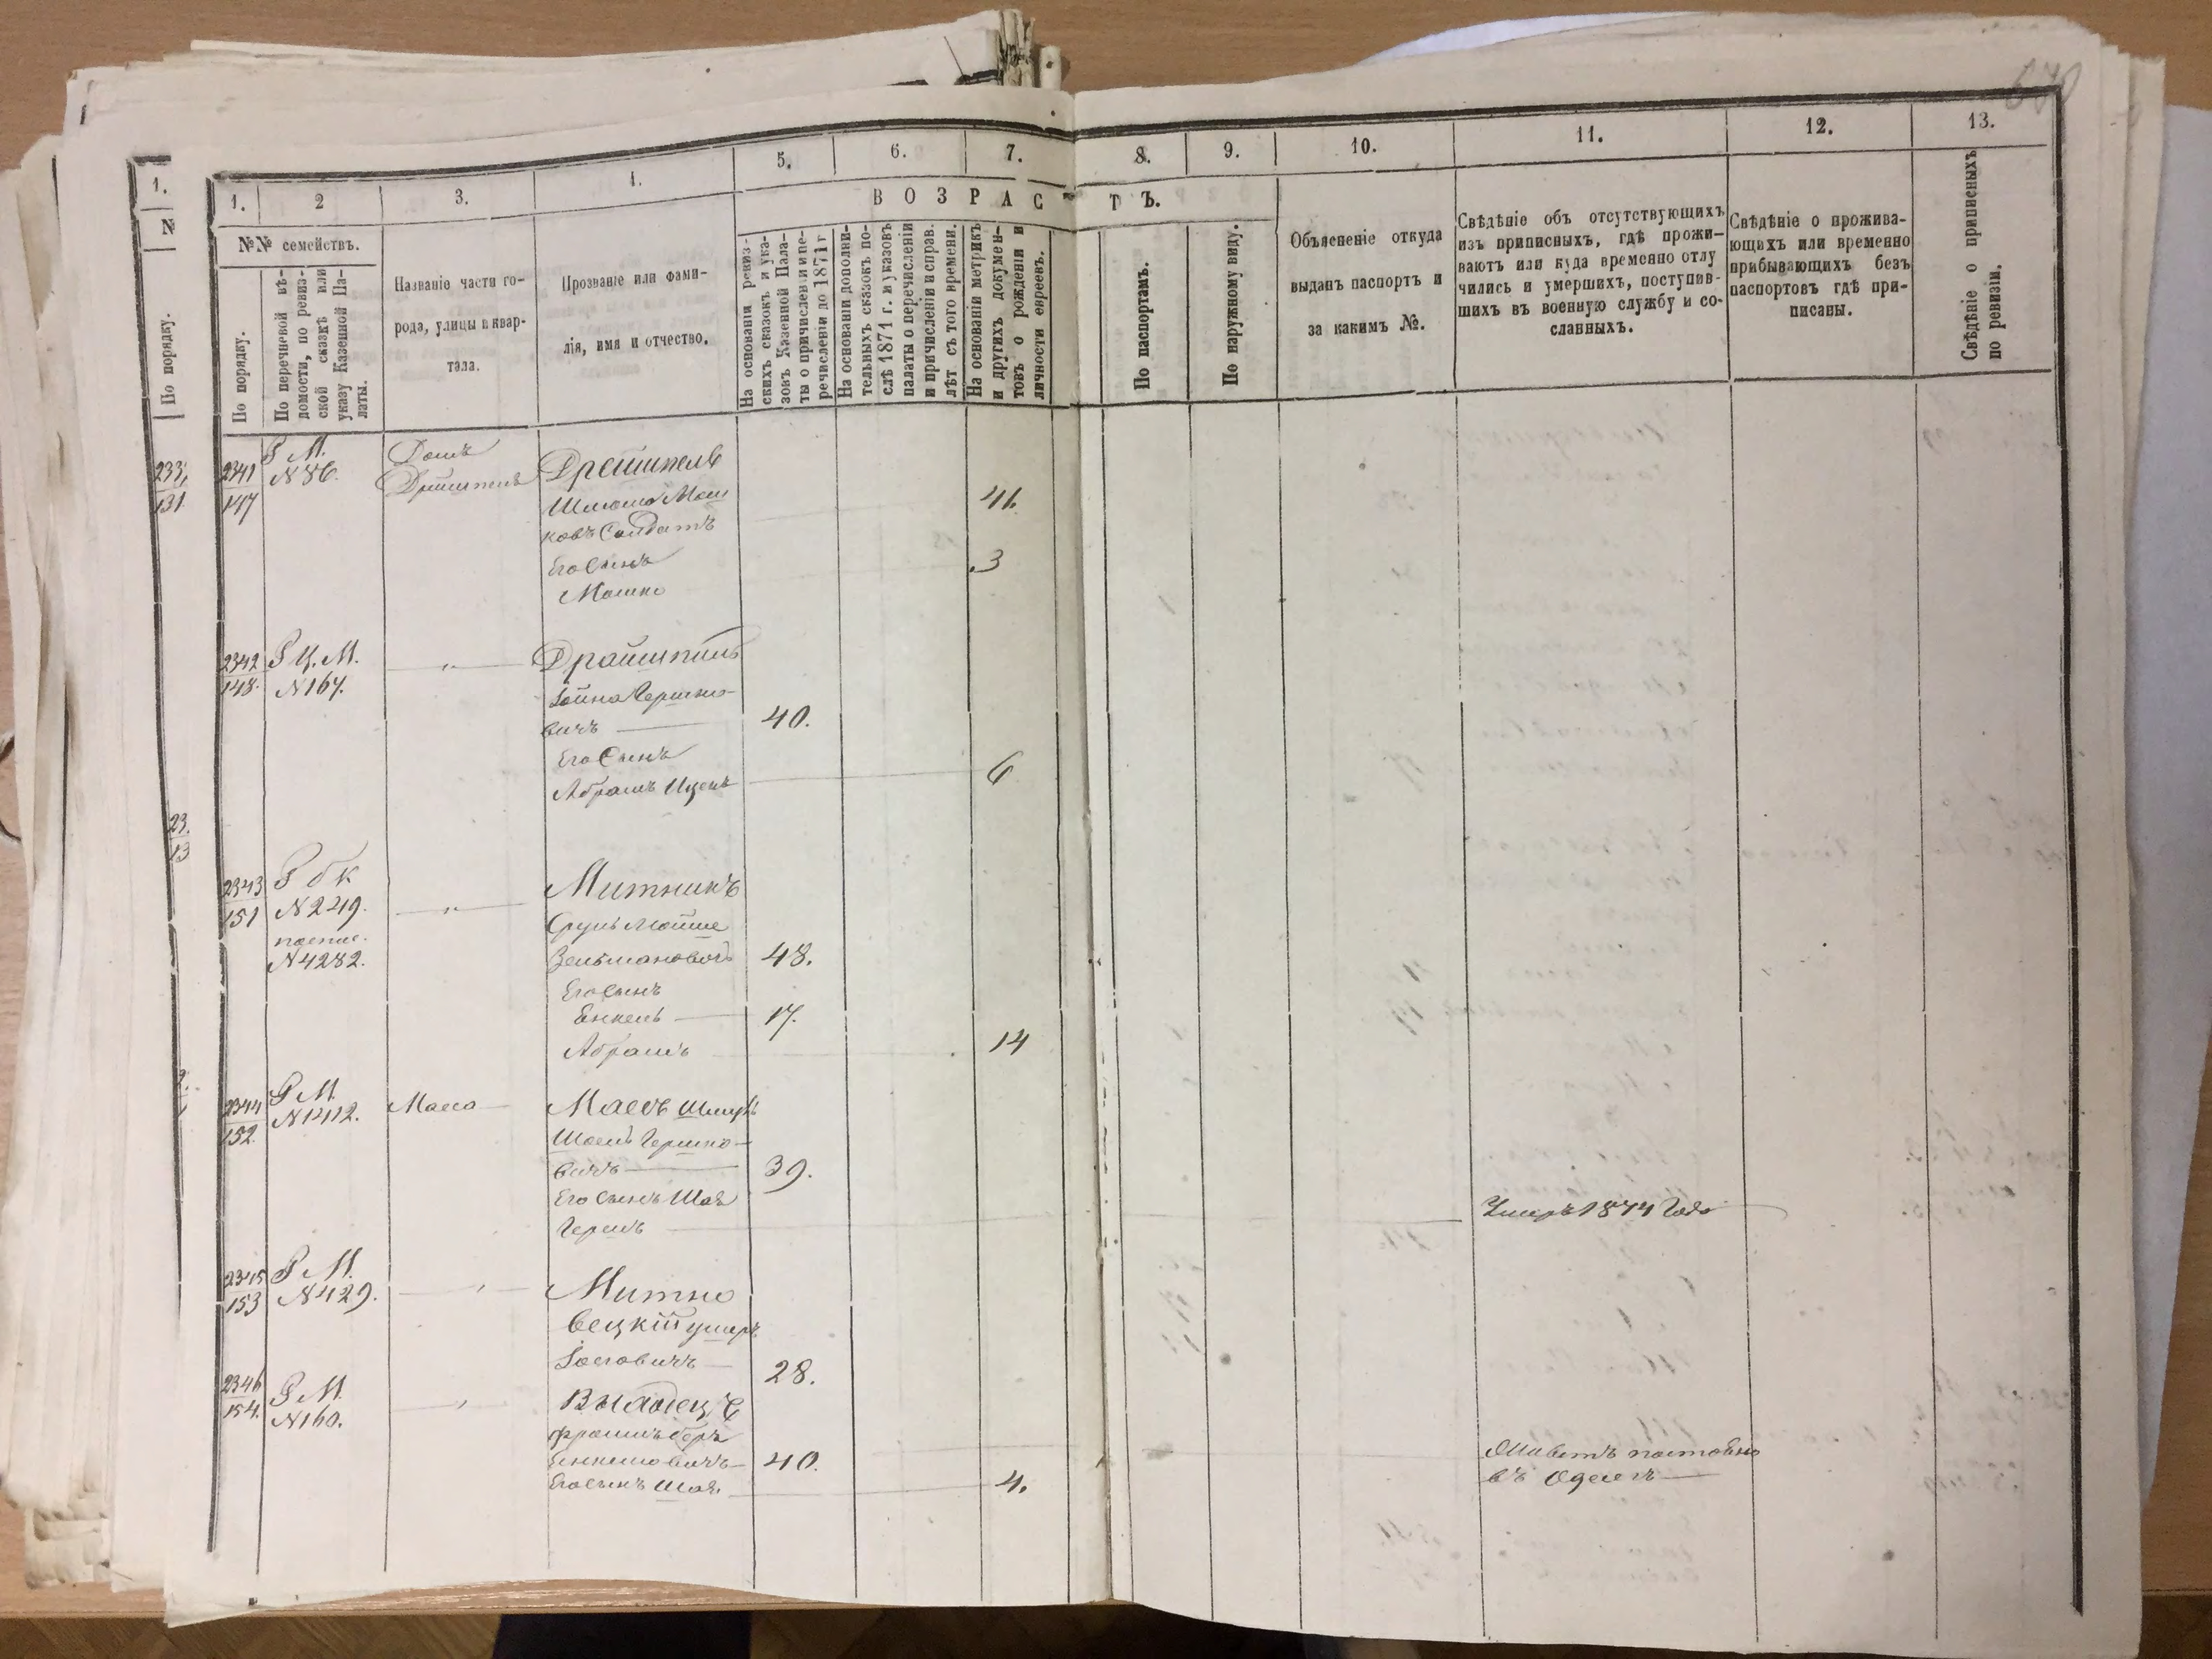 678
1.
N
По порядку.
233
131
23
13
1.
2
3.
4.
5.
6.
7.
8.
9.
10.
11.
12.
13.
№№ семействъ.
ВОЗРАСТЪ.
По порядку.
По перечневой вѣ-
домости, по ревиз-
ской сказкѣ или
указу Казенной Па-
латы.
Названіе части го-
рода, улицы и квар-
тала.
Прозваніе или фами-
лія, имя и отчество.
На основаніи ревиз-
скихъ сказокъ и ука-
зовъ Казенной Пала-
ты о причислен и и пе-
речислені до 1871 г
На основаніи дополни-
тельныхъ сказокъ по-
слѣ 1871 г. и указовъ
палаты о перечисленіи
и причисленіи и справ.
лѣт съ того времени.
На основаніи метрикъ
и другихъ докумен-
товъ о рожденіи и
личности евреевъ.
По паспортамъ.
По наружному виду.
Объясненіе откуда
выданъ паспортъ и
за какимъ №.
Свѣдѣніе объ отсутствующихъ
изъ приписныхъ, гдѣ прожи-
ваютъ или куда временно отлу
чились и умершихъ, поступив-
шихъ въ военную службу и со-
сланныхъ.
Свѣдѣніе о прожива-
ющихъ или временно
прибывающихъ безъ
паспортовъ гдѣ при-
писаны.
Свѣдѣніе о приписныхъ
по ревизіи.
2341
147
Р М.
N 86.
Домъ
Дрейшпель
Шлиома Мош
ковъ Солдатъ
41.
Его Сынъ
3
Мошко
2342
148.
Р Ц. М.
N 167.
"
Драйшпиль
Іойна Гершко-
вичъ
40.
Его Сынъ
Абрамъ Ицекъ
6
2343
151
Р б к
N 249.
N 4282.
"
Митникъ
Сруль Мойше
Зельмановичъ
48.
Его Сынъ
Енкель
17.
Абрамъ
14
2344
152
Р М.
N 1412.
Маса
Шоель Гершко-
вичъ
39.
Его Сынъ Шая
Гершъ
Умеръ 1874 Года
2345
153
Р М.
N 429.
"
Митно
вецкій умеръ
Іосьовичъ
28.
2346
154.
Р М.
N 160.
"
Енкелевичъ
40.
Живетъ постоянно
въ Одессѣ
Его сынъ Шая.
4.